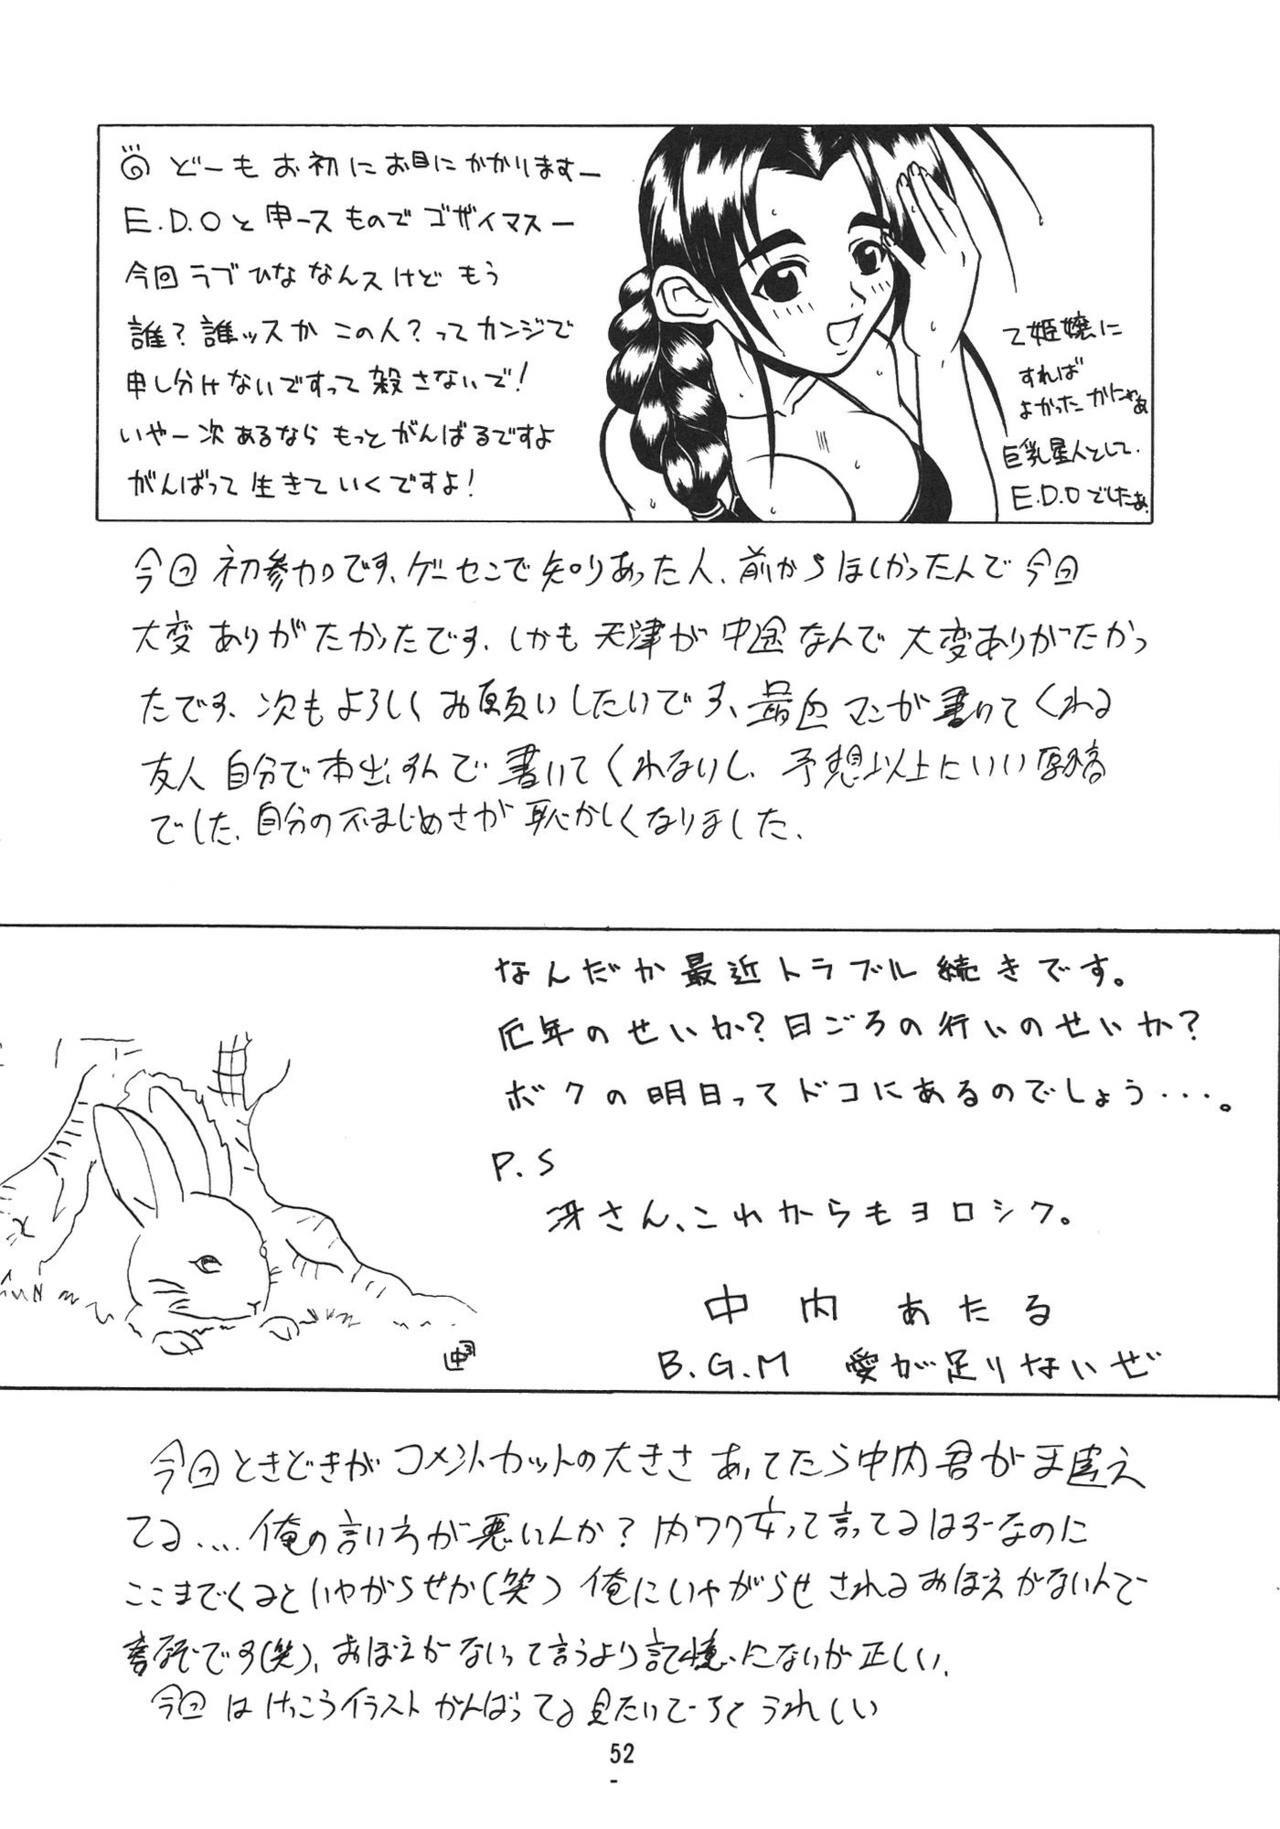 どーも お初に お目に かかりますー
E.D.Oと 申ース もので ゴザイマスー
今回 ラブひな なんスけど もう
誰？誰ッスか この人？って カンジで
申し分けないですって 殺さないで！
いやー 次 あるなら もっと がんばるですよ
がんばって 生きて いくですよ！
乙姫嬢に
すれば
よかった かにゃぁ
巨乳星人として、
E.D.O でしたぁ。
今回 初参加です、ゲーセンで 知りあった人、前から ほしかったんで 今回
大変 ありがたかったです、しかも 天津が 中途なんで 大変ありがたかっ
たです、次も よろしく お願いしたいです、最近 マンガ 書いてくれる
友人 自分で 本出すんで 書いてくれないし、予想以上に いい 原稿
でした、自分の 不まじめさが 恥かしくなりました、
なんだか 最近 トラブル 続きです。
厄年のせいか？日ごろの行いのせいか？
ボクの明日ってドコにあるのでしょう・・・。
P.S
冴さん、これからもヨロシク。
中内 あたる
B.G.M 愛が足りないぜ
今回 ときどきが コメントカットの大きさ あってたら 中内君が ま違え
てる.... 俺の言い方が 悪いんか？内ワク 女って 言ってるはずーなのに
ここまでくると いやがらせか(笑) 俺にいやがらせ される おぼえがないんで
なぞです(笑)、おぼえがないって 言うより 記憶にないが 正しい、
今回 は けっこう イラスト がんばってる 見たいで ちと うれしい
52